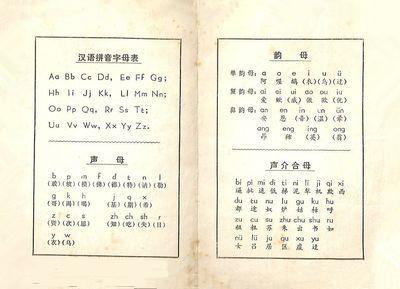 汉语拼音字母表
Aa Bb Cc Dd, Ee Ff Gg;
Hh Ii Jj Kk, Ll Mm Nn;
Oo Pp Qq, Rr Ss Tt;
Uu Vv Ww, Xx Yy Zz.
声 母
b p m f d t n l
(玻)(坡)(摸)(佛)(德)(特)(讷)(勒)
g k h j q x
(哥)(喝) (基)(希)
z c s zh ch sh r
(资)(思) (知)(吃)(失)(日)
y w
(衣)(乌)
韵 母
单韵母: a o e i u ü
阿 喔 鹅 (衣)(乌)(迂)
复韵母: ai ei ui ao ou iu
爱 (威) 傲 欧 (优)
鼻韵母: an en in un ün
安 恩 (音)(温)(晕)
ang eng ing ong
昂 (英)(翁)
声介合母
bi pi mi di ti ni li ji qi xi
逼 批 迷 低 梯 泥 机 欺 西
du tu nu lu gu ku hu
都 途 奴 炉 姑 枯 呼
zu cu su zhu chu shu ru
租 粗 苏 朱 出 书 如
nü lü ju qu xu yu
女 吕 居 区 虚 迂